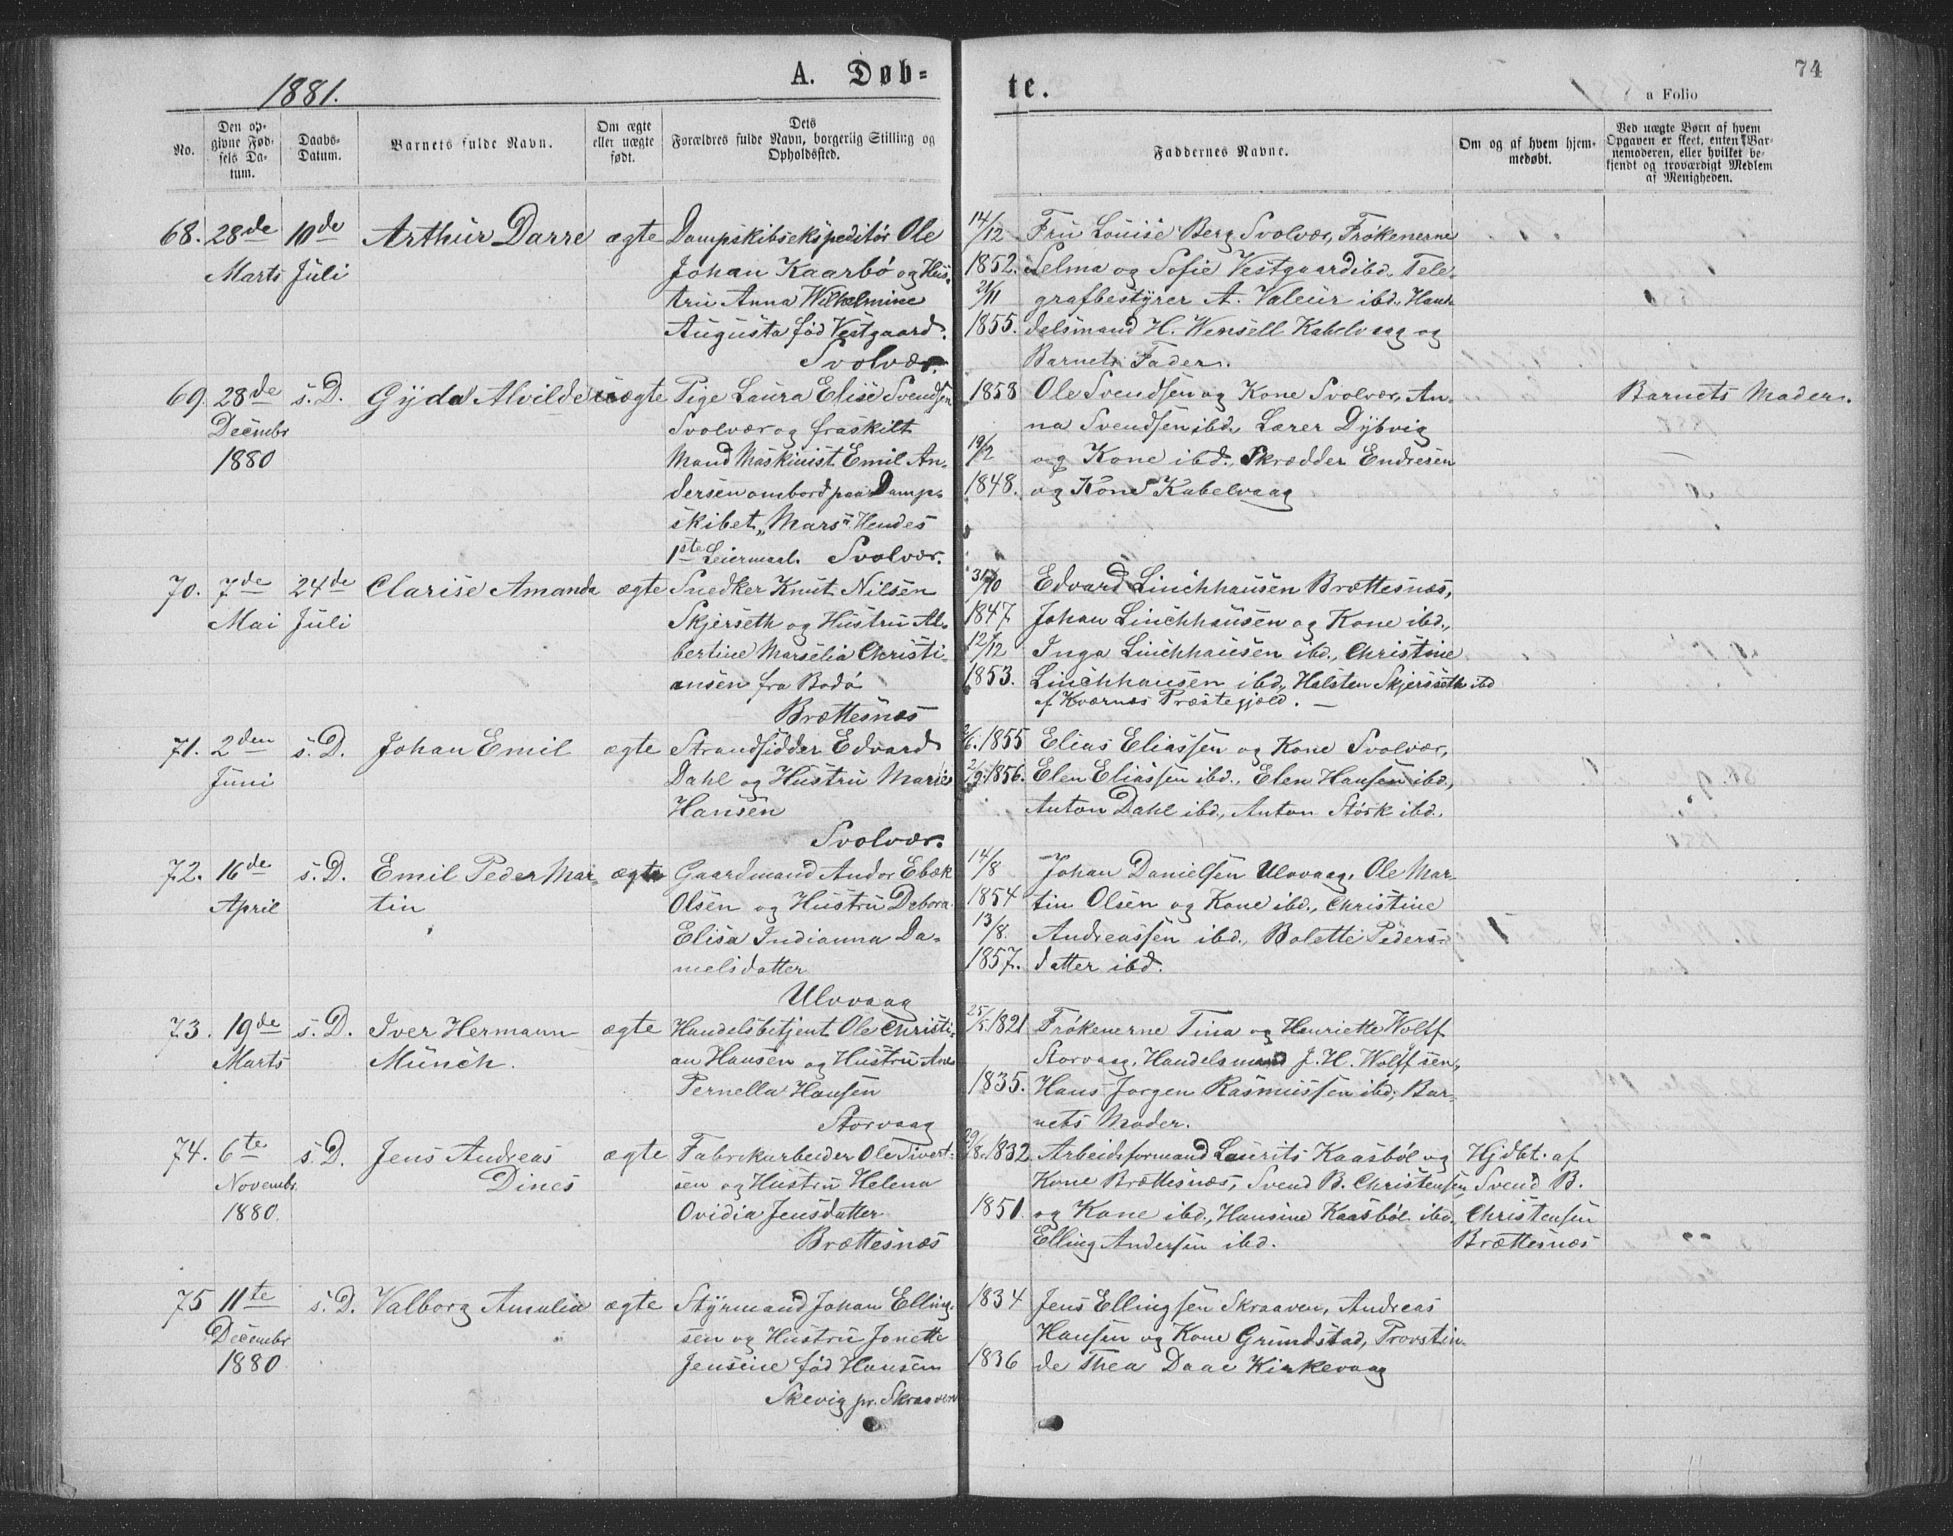 1881.
A. Døb=
te.
74
a Folio
No.
Den op=
givne Fød=
sels Da=
tum.
Daabs=
Datum.
Barnets fulde Navn.
Om ægte
eller uægte
født.
Dets
Forældres fulde Navn, borgerlig Stilling og
Opholdssted.
Faddernes Navne.
Om og af hvem hjem=
medøbt.
Ved uægte Børn af hvem
Opgaven er skeet, enten Bar=
nemoderen, eller hvilket be=
kjendt og troværdigt Medlem
af Menigheden.
68. 28de 10de Arthur Darre ægte Dampskibsekspeditør Ole
Marts Juli Johan Kaarbø og Hus=
tru Anna Wilhelmine
Augusta fød Vestgaard.
Svolvær.
14/12 Fru Louise Berg Svolvær, Frøkenerne
1852. Selma og Sofie Vestgaard ibd. Tele=
21/11 grafbestyrer A. Valeur ibd. Han=
1855. delsmand H. Wensell Kabelvaag og
Barnets Fader.
69. 28de s. D. Gyda Alvilde uægte Pige Laura Elise Svendsen
Decembr Svolvær og fraskilt
1880 Mand Maskinist Emil An=
dersen ombord paa Damp=
skibet "Mars" Hendes
1ste Leiermaal. Svolvær.
1858 Ole Svendsen og Kone Svolvær, An=
na Svendsen ibd., Lærer Dybvig
19/2 og Kone ibd. Skrædder Endresen
1848. og Kone Kabelvaag
Barnets Moder.
70. 7de 24de Clarise Amanda ægte Snedker Knut Nilsen
Mai Juli Skjerseth og Hustru Al=
bertine Marselia Christi=
ansen fra Bodø
Brættesnæs
31/10 Edvard Linchhausen Brættesnæs,
1847 Johan Linchhausen og Kone ibd.,
12/12 Inga Linchhausen ibd., Christine
1853. Linchhausen ibd., Halsten Skjersseth ibd
af Kværnæs Præstegjeld.
71. 2den s. D. Johan Emil ægte Strandsidder Edvard
Juni Dahl og Hustru Marie
Hansen
Svolvær.
/6. 1855 Elias Eliassen og Kone Svolvær,
2/9. 1856. Elen Eliassen ibd., Elen Hansen ibd.,
Anton Dahl ibd., Anton Størk ibd.
72. 16de s. D. Emil Peder Mar= ægte Gaardmand Andor Ebæk
April tin Olsen og Hustru Debora
Elisa Indianna Da=
nielsdatter
Ulvvaag
14/8 Johan Danielsen Ulvvaag, Ole Mar=
1854 tin Olsen og Kone ibd., Christine
13/8. Andreassen ibd., Bolette Peders=
1857. datter ibd.
73. 19de s. D. Iver Hermann ægte Handelsbetjent Ole Christi=
Marts Münch. an Hansen og Hustru Ane
Pernella Hansen
Storvaag
25/5. 1821 Frøkenerne Tina og Henriette Wolff
Storvaag, Handelsmand J. H. Wolff sen.,
1835. Hans Jørgen Rasmussen ibd., Bar=
nets Moder.
74. 6te s. D. Jens Andreas ægte Fabrikarbeider Ole Sivert=
Novembr. Dines sen og Hustru Helena
1880. Ovidia Jensdatter
Brættesnæs
/8. 1832 Arbeidsformand Laurits Kaasbøl og Hjdbt. af
Kone Brættesnæs, Svend B. Christensen Svend B.
1851. og Kone ibd., Hansine Kaasbøl ibd. Christensen
Elling Andersen ibd. Brættesnæs
75 11te s. D. Valborg Amalia ægte Styrmand Johan Elling=
Decembr sen og Hustru Jonette
1880. Jensine fød Hansen
Skevig pr. Skraaven
1834 Jens Ellingsen Skraaven, Andreas
Hansen og Kone Grundstad, Provstin=
1836 de Thea Daae Kirkevaag